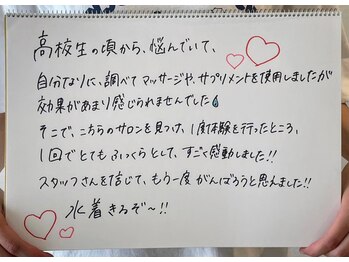 高校生の頃から、悩んでいて、
自分なりに、調べて マッサージや、サプリメントを使用しましたが
効果があまり感じられませんでした
そこで、こちらのサロンを見つけ、1度体験を行ったところ、
1回でとてもふっくらとして、すごく感動しました!!
スタッフさんを信じて、もう一度 がんばろうと思えました!!
水着きるぞ〜!!